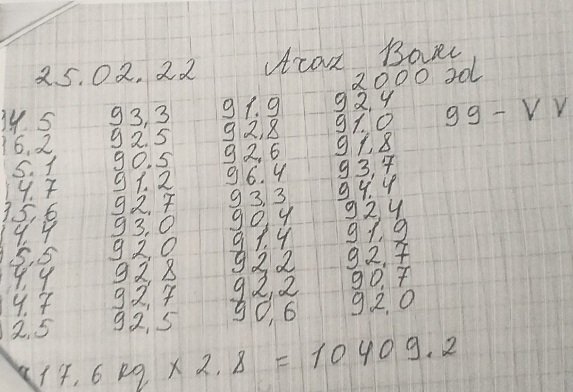 25.02.22 Araz Bakı
2000 əd
4.5 93,3 91.9 92,4 99 - VV
6.2 92.5 92,8 91.0
5.1 90.5 92.6 91,8
4.7 91.2 96.4 93,7
5,6 92.7 93,3 94.4
4.4 93,0 90,4 92,4
5,5 92,0 91,4 91,9
4.4 92,8 92,2 92,7
4.7 92,7 92,2 90,7
2.5 92,5 90,6 92,0
17,6 kg x 2,8 = 10409.2